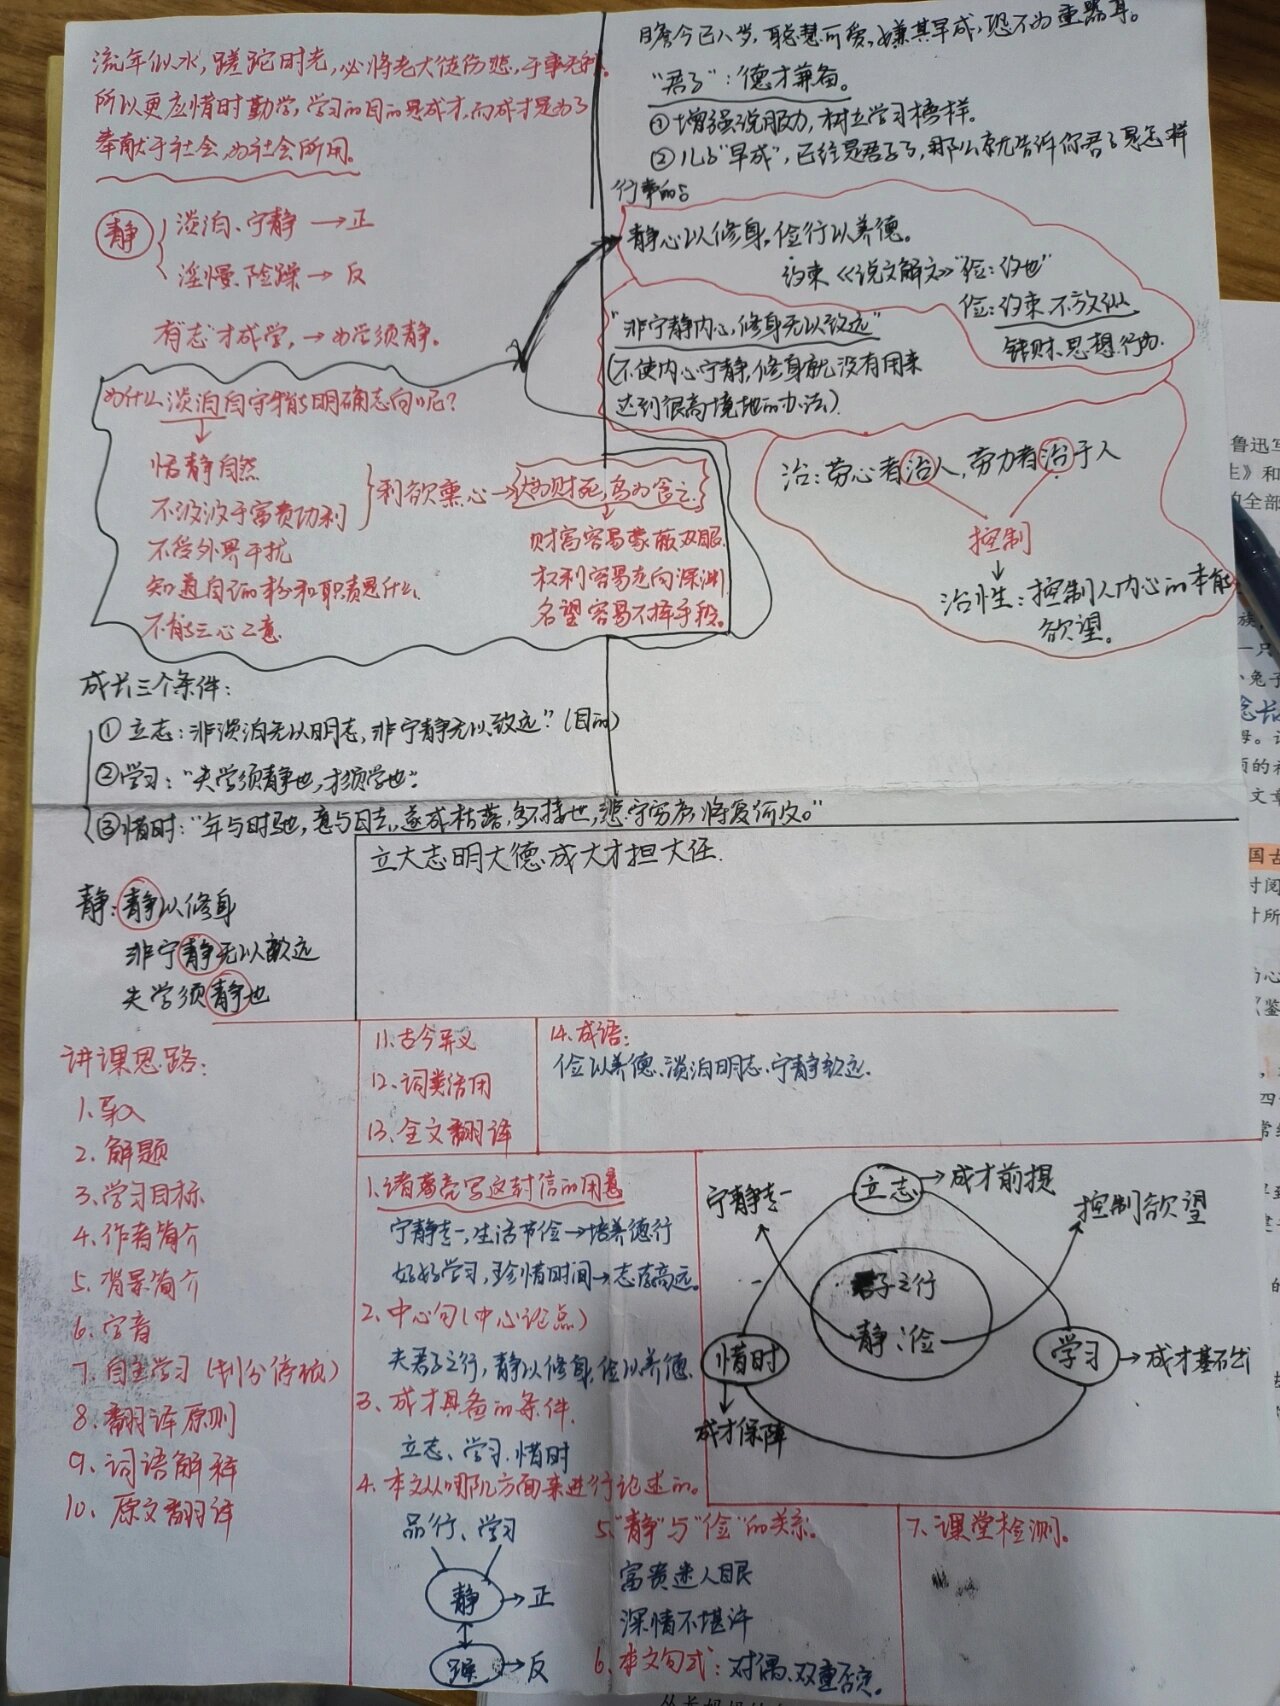 流年似水,蹉跎时光,必将老大徒伤悲,于事无补。
所以更应惜时勤学,学习的目的是成才,而成才是为了
奉献于社会,为社会所用。
静
淡泊、宁静→正
淫慢、险躁→反
有"志"才成学,→为学须静。
为什么淡泊自守才能明确志向呢?
恬静自然
不汲汲于富贵功利
不受外界干扰
知道自己的本分和职责是什么
不能三心二意
利欲熏心→人为财死,鸟为食亡
财富容易蒙蔽双眼
权利容易走向深渊
名望容易不择手段。
瞻今已八岁,聪慧可爱,嫌其早成,恐不为重器耳。
"君子":德才兼备。
①增强说服力,树立学习榜样。
②儿子"早成",已经是君子了,那么就告诉你君子是怎样
行事的。
静心以修身,俭行以养德。
约束《说文解文》"俭:约也"
俭:约束,不放纵
钱财、思想、行为.
"非宁静内心,修身无以致远"
(不使内心宁静,修身就没有用来
达到很高境地的办法)
治:劳心者治人,劳力者治于人
控制
治性:控制人内心的本能
欲望。
成长三个条件:
①立志:非淡泊无以明志,非宁静无以致远"(目的)
②学习:"夫学须静也,才须学也"
③惜时:"年与时驰,意与日去,遂成枯落,多不接世,悲守穷庐,将复何及。"
立大志明大德成大才担大任.
静:静以修身
非宁静无以致远
夫学须静也
讲课思路:
1、导入
2、解题
3、学习目标
4、作者简介
5、背景简介
6、字音
7、自主学习(划分停顿)
8、翻译原则
9、词语解释
10、原文翻译
11.古今异义
12、词类活用
13、全文翻译
14.成语:
俭以养德、淡泊明志、宁静致远.
1、诸葛亮写这封信的用意
宁静专一,生活节俭→培养德行
好好学习,珍惜时间→志存高远。
2、中心句(中心论点)
夫君子之行,静以修身,俭以养德.
3、成才具备的条件.
立志、学习、惜时
4、本文从哪几方面来进行论述的。
品行、学习
静→正
躁→反
宁静专一
立志→成才前提
控制欲望
君子之行
静;俭
惜时
学习→成才基础
成才保障
5."静"与"俭"的关系。
富贵迷人眼
深情不堪许
6、本文句式:对偶、双重否定。
7、课堂检测。